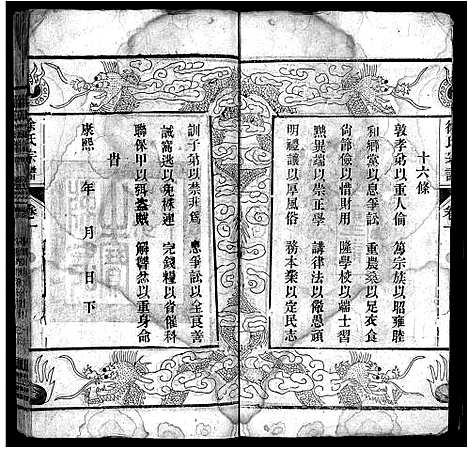 十六條
敦孝弟以重人倫　篤宗族以昭雍睦
和鄉黨以息爭訟　重農桑以足衣食
尚節儉以惜財用　隆學校以端士習
黜異端以崇正學　講律法以儆愚頑
明禮讓以厚風俗　務本業以定民志
訓子弟以禁非為　息爭訟以全良善
誡窩逃以免株連　完錢糧以省催科
聯保甲以弭盜賊　解讐忿以重身命
旨
康熙　年　月　日下
徐氏宗譜
卷一
徐氏宗譜
卷一